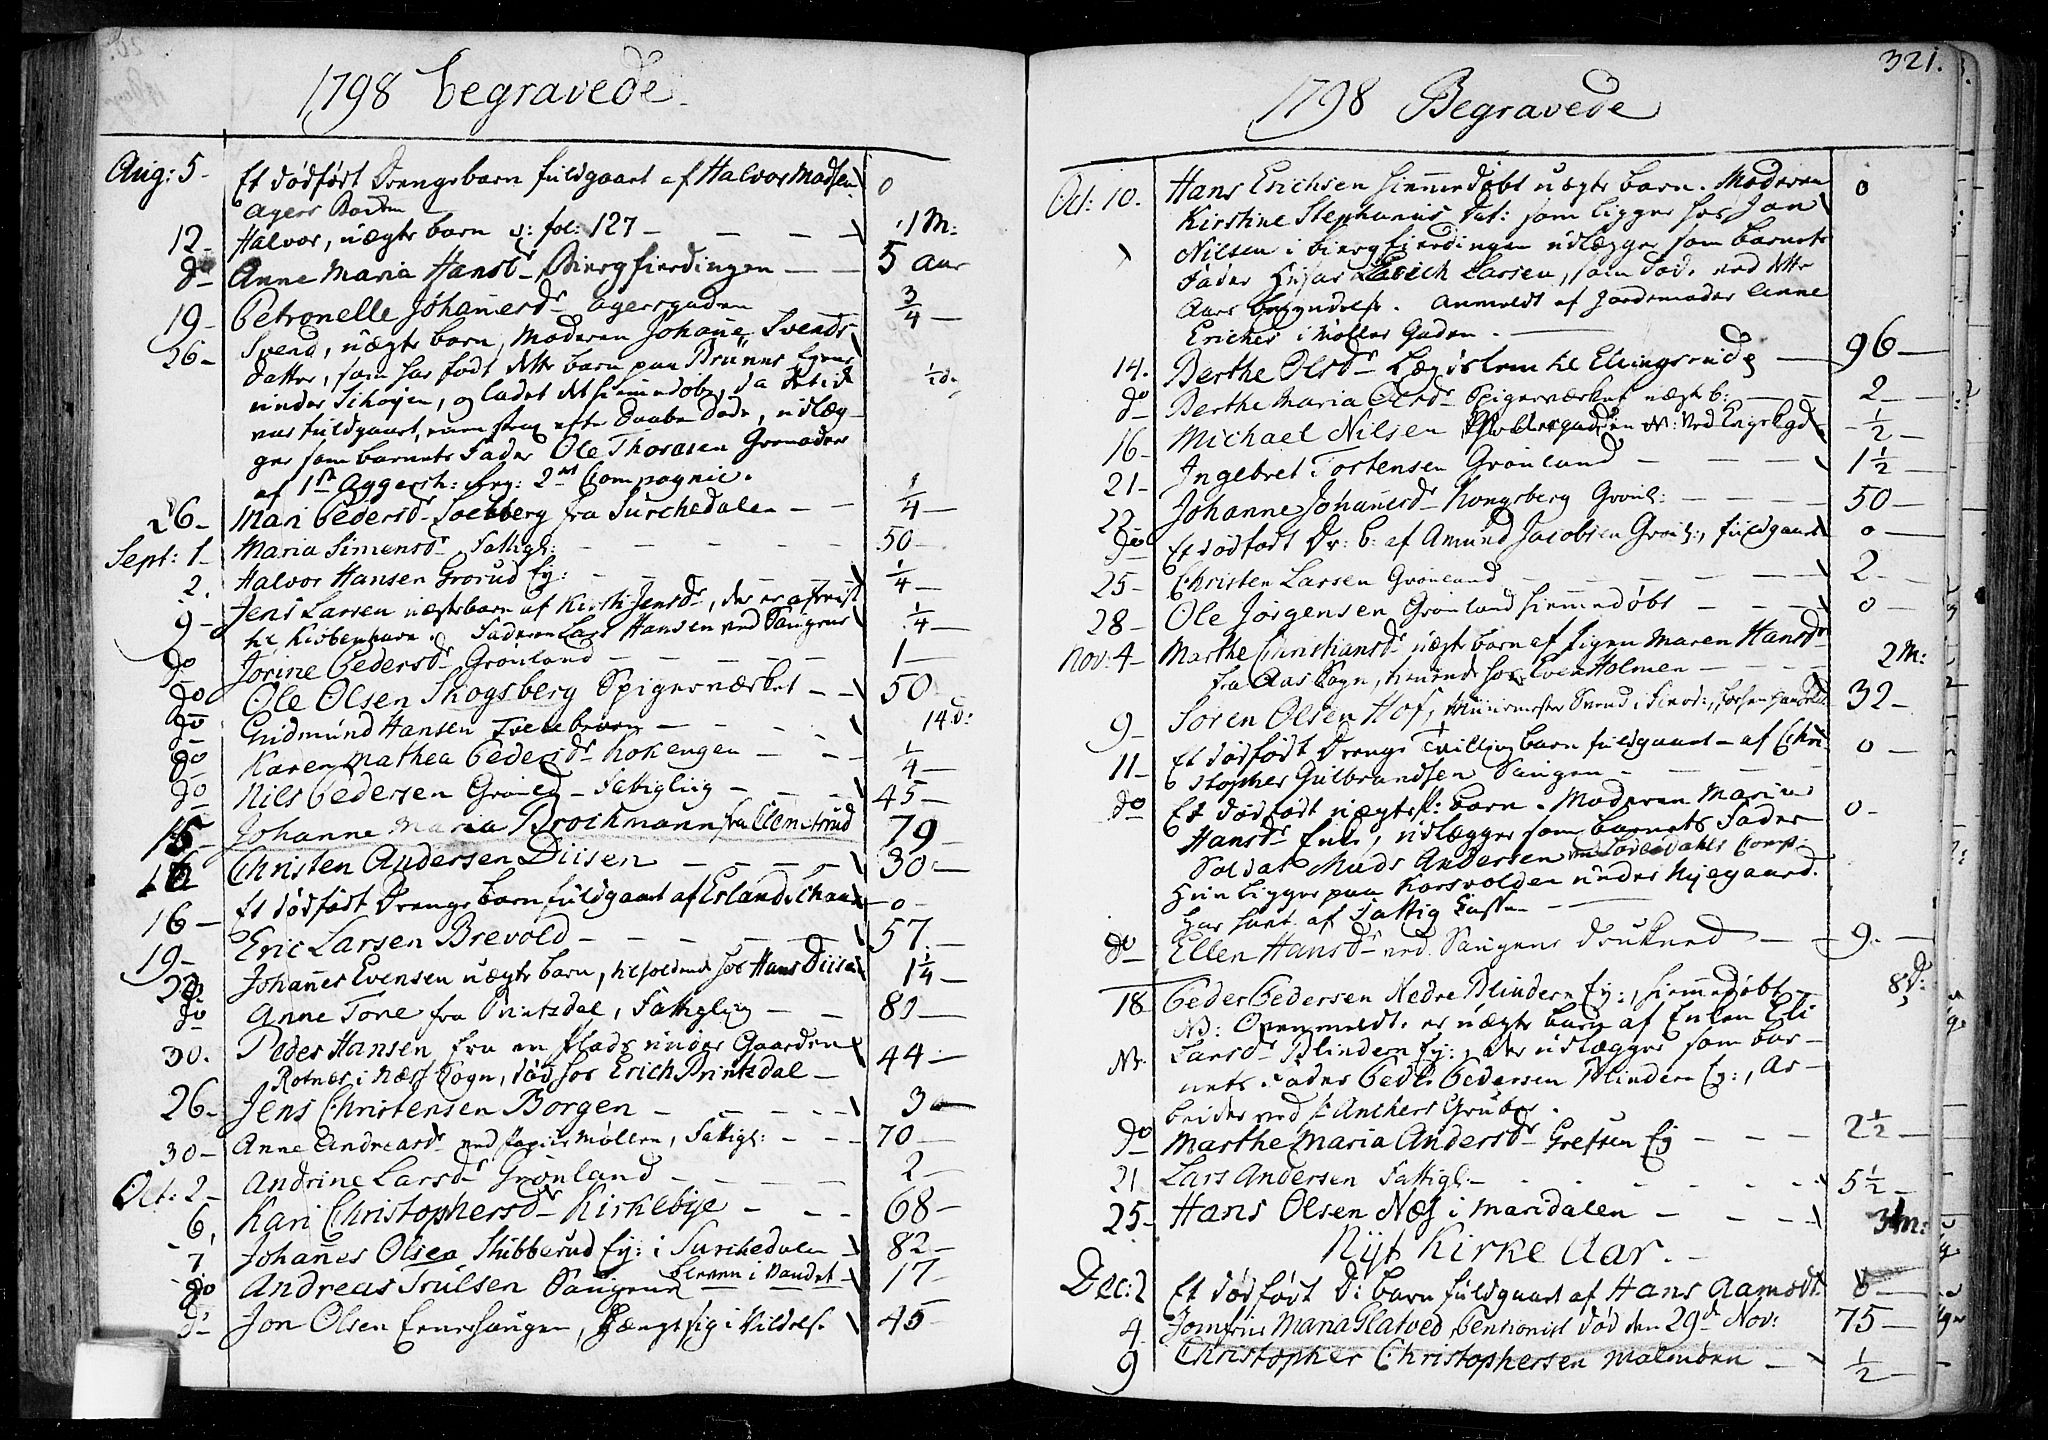 1798 begravede.
Aug: 5- Et dödfödt Drengebarn fuldgaaet af Halvor Madsen 0
Agers Backen
12- Halvor, uægte barn v: fol: 127 - - - - 1 M:
do Anne Maria Hansd. Biergfierdingen - - 5 Aar
19- Petronelle Johanesd. Agersgaden 3/4 -
26- Svend, uægte barn, Moderen Johane Svends-
datter, som har født dette barn paa Bruuns Eyer
under Schøyen, og ladet det hiemmedøbe, da det ei 1/2 d.
var fuldgaaet, som strax efter Daaben døde, udlæg-
ger som barnets Fader Ole Thorsen Grenadeer
af 1ste Aggersh: Reg: 2det Compagnie.
26- Mari Pedersd. fra Surchedalen - - 1/4 -
Sept: 1- Maria Simensd. Fattigl: - - - - 50 -
2. Halvor Hansen Grorud Ey: - - - - 1/4 -
9- Jens Larsen uægte barn af Kirsti Jensd., der er afreist
til Kiøbenhavn. Faderen Lars Hansen ved Saugene 1/4 -
do Jorine Pedersd. Grønland - - - - 1 -
do Ole Olsen Skogsberg Spigerværket - - 50
do Gudmund Hansen - - - 14 d:
do Karen Mathea Pedersd. Kokengen - - - 1/4 -
do Nils Pedersen Grönld - Fattiglig - - - 45 -
15 Johanne Maria Brockmann fra 79 -
16 Christen Andersen Diisen - - - - 30 -
16- Et dödfödt Drengebarn fuldgaaet af Erland - 0 -
19- Eric Larsen Brevold - - - - - 57. -
Johanes Evensen uægte barn, tilholdende hos Hans Diisen 1 1/4 -
do Anne Tone fra Printsdal, Fattiglig - - 80 -
30. Peder Hansen, fra en Plads under Gaarden 44 -
Rotnes i Næss Sogn, død hos Erich Printsdal -
26- Jens Christensen Borgen - - - - 30
30- Anne Andreasd. ved Papiir Møllen, Fattigl: - - - 70 -
Oct: 2- Andrine Larsd. Grønland - - - - 2 -
6, Kari Christophersd. Kirkebye - - - 68 -
7 Johanes Olsen Stubberud Ey: i Surchedalen - 82 -
do Andreas Trulsen Saugene bleven i Vandet - 17 -
do Jon Olsen Ernershaugen, hængt sig i Vildelse 45 -
321.
1798 Begravede
Oct: 10. Hans Erichsen hiemmedøbt uægte barn. Moderen 0
Kirstine Stephanus Dat: som ligger hos Jan
Nilsen i Biergfierdingen udlægger som barnets
Fader Larsen, som døde ved dette
Aars begyndelse. Anmeldt af Jordemoder Anne
Eriches i Møller Gaden. -
14. Berthe Olsd. Lægdslem til Ellingsrud - 96 -
do Berthe Maria Olsd. Spigerværket uægte b: - - 2 -
16- Michael Nilsen - 1/2 -
21- Ingebret Torstensen Grønland - - - 1 1/2 -
22- Johanne Johanesd. Kongsberg Grönl: - - - - 50 -
do Et dödfödt Dr: b: af Amund Jacobsen Grönl:, fuldgaaet 0 -
25- Christen Larsen Grønland - - - - - 2 -
28- Ole Jörgensen Grønland hiemmedøbt - - - 0 -
Nov: 4- Marthe Christiansd. uægte barn af Pigen Maren Hansd.
fra Aas Sogn, tienende hos Even Holmen - - - 2 M:
9- Sören Olsen Hof, 32 -
11- Et dödfödt Drenge Tvillingbarn fuldgaaet - af Chri- 0 -
stopher Gulbrandsen Saugen - - -
do Et dödfödt uægte barn. Moderen Marie 0 -
Hansd. Enke, udlægger som barnets Fader
Soldat Mads Andersen Comp.
Hun ligger paa Korsvolden under Nyegaard.
Har havt af Fattig Cassen -
do Ellen Hansd. ved Saugene druknet - 9. -
18 Peder Pedersen Nedre Blindern Ey:, hiemmedøbt - 8 d:
NB: Ovenmeldte er uægte barn af Enken Eli
NB. Larsd. Blindern Ey:, der udlægger som bar-
nets Fader Peder Pedersen Blindern Ey:, Ar-
beider ved Anchers Gruber.
do Marthe Maria Andersd. Grefsen Ey - - - - 2 1/2 -
21. Lars Andersen Fattigl: - - - - - 5 1/2 -
25- Hans Olsen Næs i Maridalen - - - - 3 M:
Nyt Kirke Aar. -
Dec: 2 Et dødfødt D: barn fuldgaaet af Hans Aamodt 0 -
4. Jomfrue Maria Glatved, Pensionist död den 29de Nov: 75 -
9 Christopher Christophersen - - 1/2 -